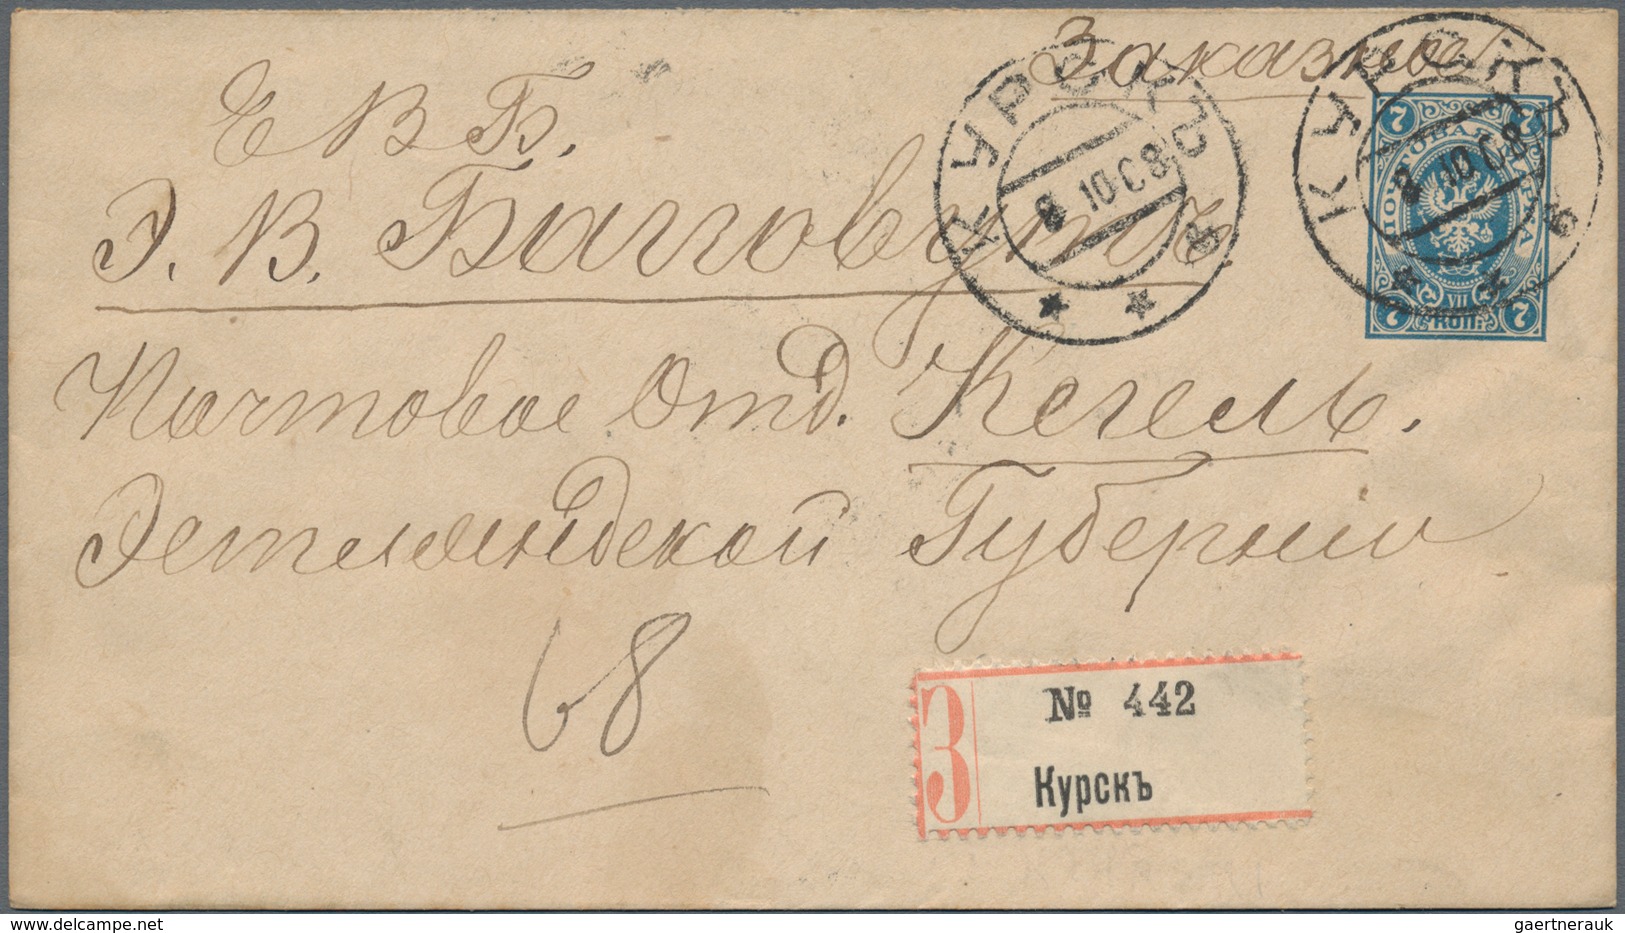 Заказное
Е В Б.
Э. В. Багговутъ.
Почтовое Отд. Кегель.
Эстляндской Губерніи
68
КУРСКЪ
8 10 08
КУРСКЪ
8 10 08
ПОЧТОВАЯ МАРКА
7 7
7 VII КОП. 7
З
№ 442
Курскъ
gaertnerauk